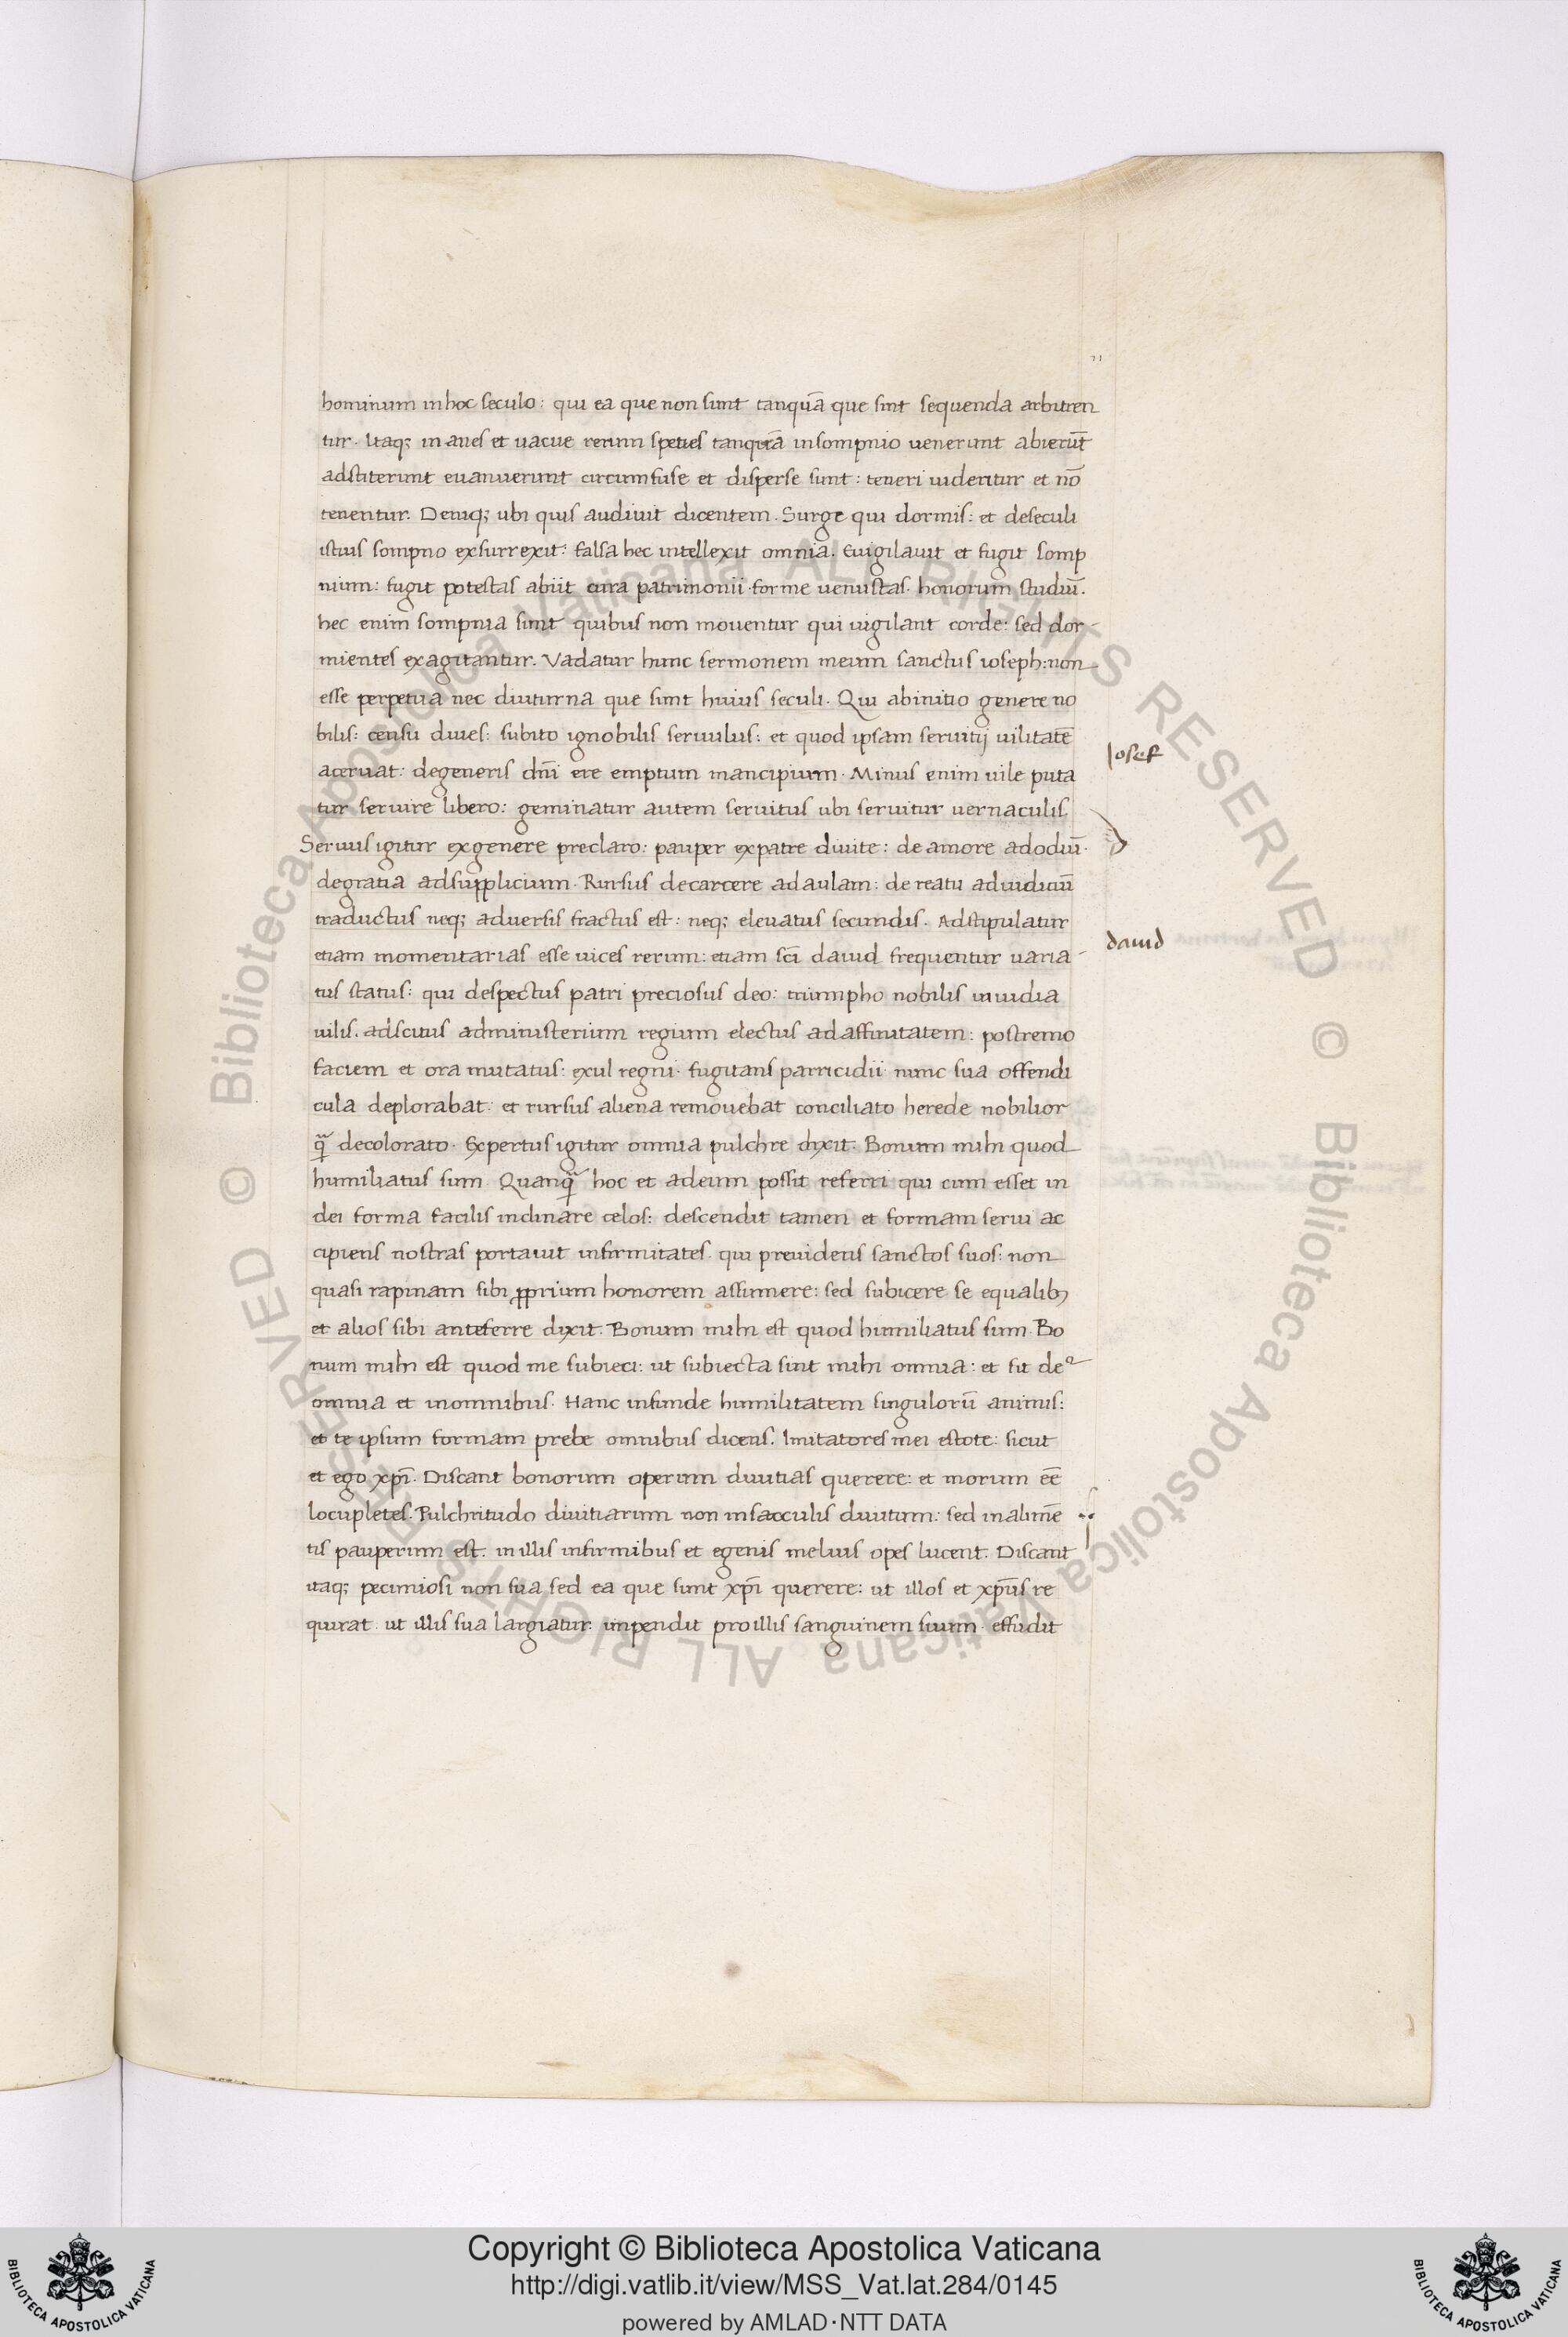 hominum inhoc seculo: qui ea que non sunt tanquā que sint sequenda arbitren
tur. Itaq; inanes et uacue rerum speties tanquā insompnio uenerunt abierūt
adstiterunt euanuerunt circumfuse et disperse sunt: teneri uidentur et nō
tenentur. Deniq; ubi quis audiuit dicentem. Surge qui dormis: et deseculi
istius sompno exsurrexit: falsa hec intellexit omnia. Euigilauit et fugit somp
nium: fugit potestas abiit cura patrimonii. forme uenustas. honorum studiū.
hec enim sompnia sunt quibus non mouentur qui uigilant corde: sed dor
mientes exagitantur. Vadatur hunc sermonem meum sanctus ioseph: non
esse perpetua nec diuturna que sunt huius seculi. Qui abinitio genere no
bilis: censu diues: subito ignobilis seruulus: et quod ipsam seruitij uilitatē
aceruat: degeneris dnī ere emptum mancipium. Minus enim uile puta
tur seruire libero: geminatur autem seruitus ubi seruitur uernaculis.
Seruus igitur exgenere preclaro: pauper expatre diuite: de amore adodiū.
degratia adsupplicium. Rursus decarcere adaulam: de reatu adiudiciū
traductus neq; aduersis fractus est: neq; eleuatus secundis. Adstipulatur
etiam momentarias esse uices rerum: etiam scī dauid frequentur uaria
tus status: qui despectus patri preciosus deo: triumpho nobilis inuidia
uilis. adscitus administerium regium electus adaffinitatem: postremo
faciem et ora mutatus: exul regni. fugitans parricidii nunc sua offendi
cula deplorabat: et rursus aliena remouebat conciliato herede nobilior
q̄ decolorato. Expertus igitur omnia pulchre dixit. Bonum mihi quod
humiliatus sum. Quanq̄ hoc et adeum possit referri qui cum esset in
dei forma facilis inclinare celos: descendit tamen et formam serui ac
cipiens nostras portauit infirmitates. qui preuidens sanctos suos: non
quasi rapinam sibi ꝓprium honorem assumere: sed subicere se equalibꝫ
et alios sibi anteferre dixit. Bonum mihi est quod humiliatus sum. Bo
num mihi est quod me subieci: ut subiecta sint mihi omnia: et sit deꝰ
omnia et inomnibus. Hanc infunde humilitatem singulorū animis:
et te ipsum formam prebe omnibus dicens. Imitatores mei estote: sicut
et ego xpī. Discant bonorum operum diuitias querere: et morum eē
locupletes. Pulchritudo diuitiarum non insacculis diuitum: sed inalimē
tis pauperum est. in illis infirmibus et egenis melius opes lucent. Discant
itaq; pecuniosi non sua sed ea que sunt xpī querere: ut illos et xpūs re
quirat. ut illis sua largiatur. inpendit proillis sanguinem suum. effudit
Iosef
dauid
© Biblioteca Apostolica Vaticana ALL RIGHTS RESERVED © Biblioteca Apostolica Vaticana ALL RIGHTS RESERVED
Copyright © Biblioteca Apostolica Vaticana
http://digi.vatlib.it/view/MSS_Vat.lat.284/0145
powered by AMLAD·NTT DATA
BIBLIOTECA APOSTOLICA VATICANA
BIBLIOTECA APOSTOLICA VATICANA